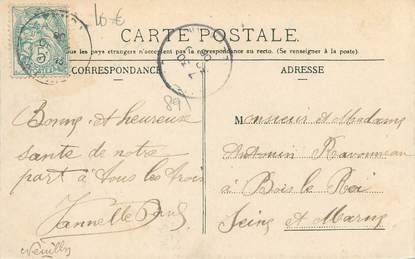 10 €
CARTE POSTALE
Tous les pays étrangers n'acceptent pas la correspondance au recto. (Se renseigner à la poste.)
CORRESPONDANCE
ADRESSE
89
Bonne et heureuse
santé de notre
part à tous les trois
Vannelle
Neuilly
Monsieur et Madame
Antonin Ravonneau
à Bois le Roi
Seine et Marne